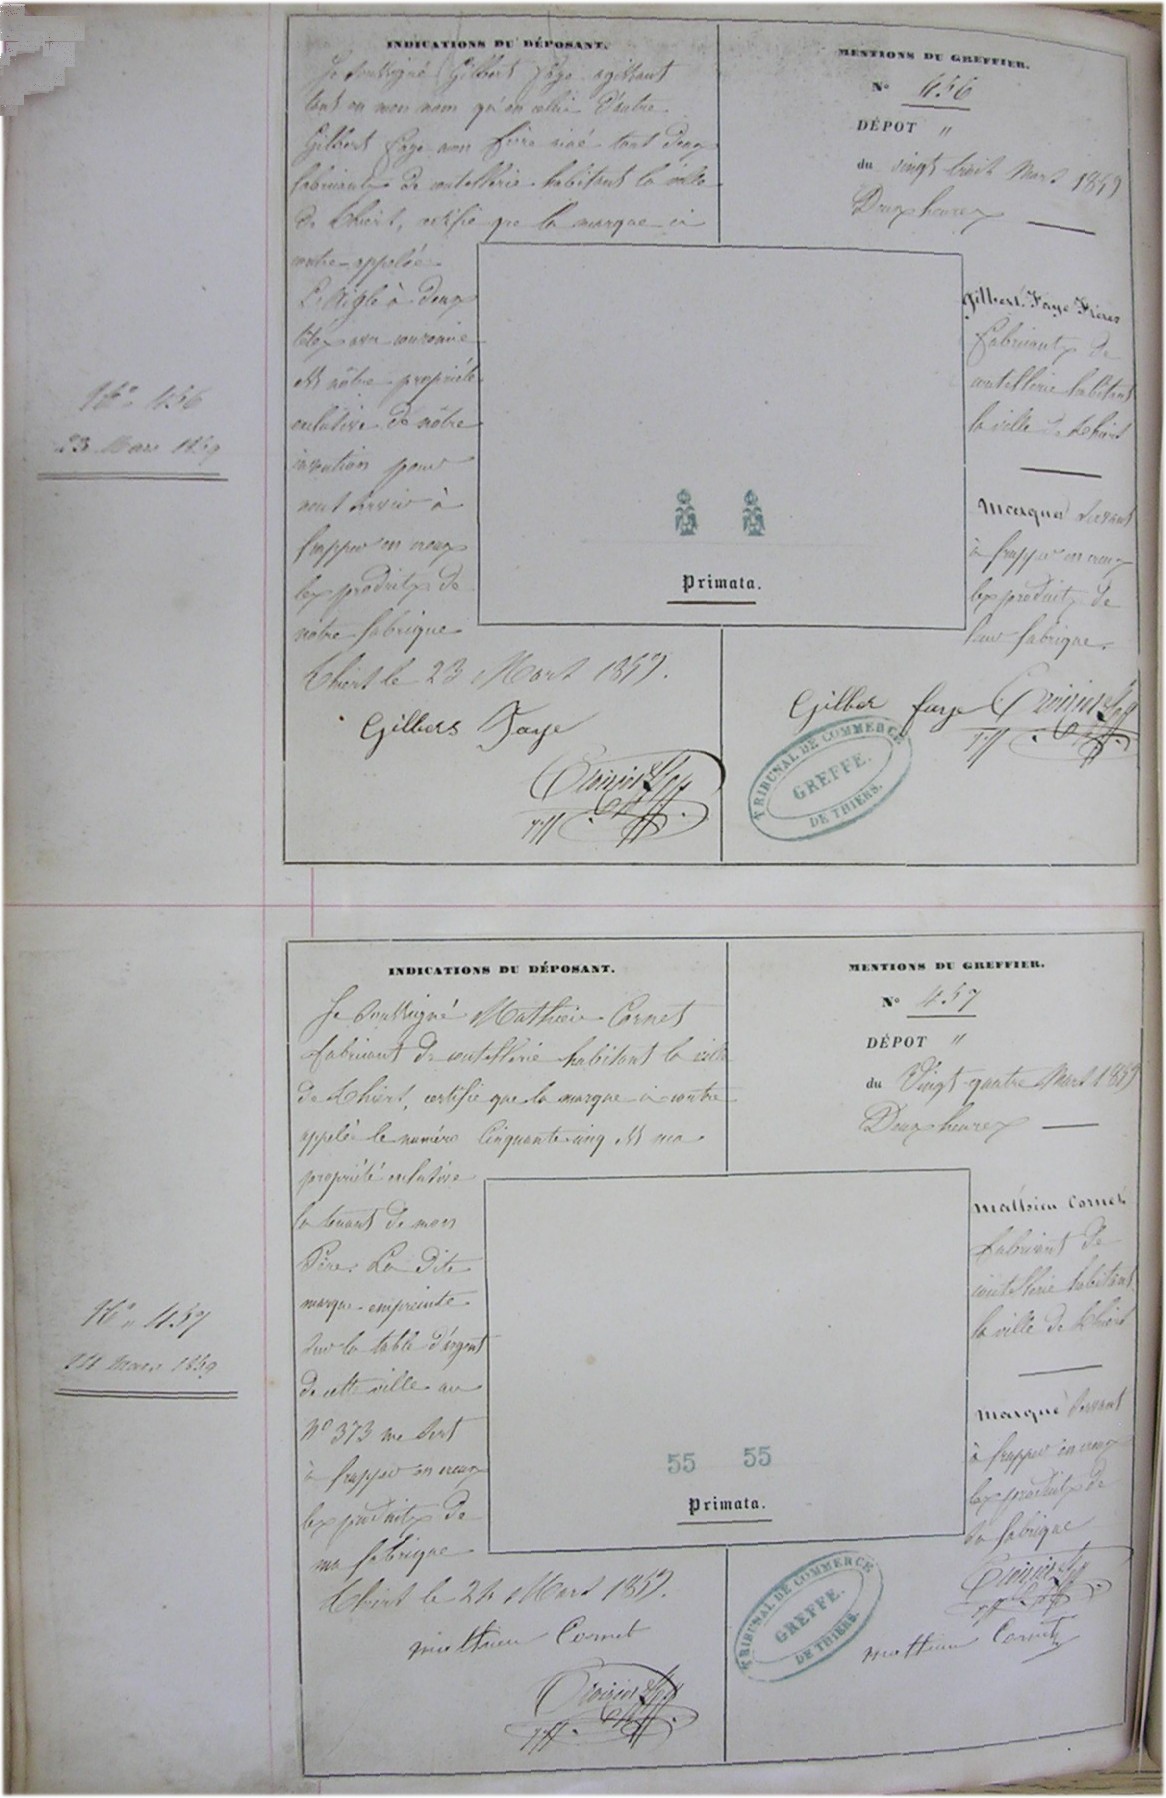 INDICATIONS DU DÉPOSANT.
Je soussigné Gilbert Faye agissant
tant en mon nom qu'en celui d'autre
Gilbert Faye mon frère ainé tout deux
fabricants de coutellerie habitant la ville
de Thiers, certifie que la marque ci
contre appelée
L'Aigle à deux
têtes avec couronne
est nôtre propriété
exclusive de nôtre
invention pour
nous servir à
frapper en creux
les produits de
nôtre fabrique
Thiers le 23 Mars 1859.
Gilbers Faye
MENTIONS DU GREFFIER.
N° 456
DÉPOT "
du vingt trois Mars 1859
Deux heures
Gilbert Faye Frères
fabricants de
coutellerie habitant
la ville de Thiers
Marque servant
à frapper en creux
les produits de
leur fabrique.
Gilber faye
TRIBUNAL DE COMMERCE
GREFFE.
DE THIERS.
Primata.
N° 456
23 Mars 1859
INDICATIONS DU DÉPOSANT.
Je soussigné Mathieu Cornet
fabricant de coutellerie habitant la ville
de Thiers, certifie que la marque ci contre
appelée le numéro Cinquante cinq est ma
propriété exclusive
la tenant de mon
Père. La dite
marque empreinte
sur la table d'argent
de cette ville au
N° 373 me sert
à frapper en creux
les produits de
ma fabrique
Thiers le 24 Mars 1859.
mathieu Cornet
MENTIONS DU GREFFIER.
N° 457
DÉPOT "
du Vingt quatre Mars 1859
Deux heures
Mathieu Cornet
fabricant de
coutellerie habitant
la ville de Thiers
Marque servant
à frapper en creux
les produits de
sa fabrique
mathieu Cornet
TRIBUNAL DE COMMERCE
GREFFE.
DE THIERS.
55 55
Primata.
N° 457
24 Mars 1859